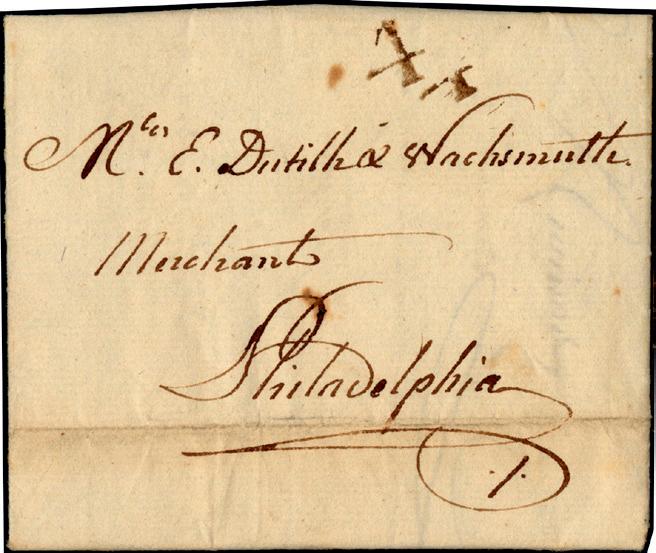 Mrs. E. Dutilh & Wachsmuth.
Merchant
Philadelphia